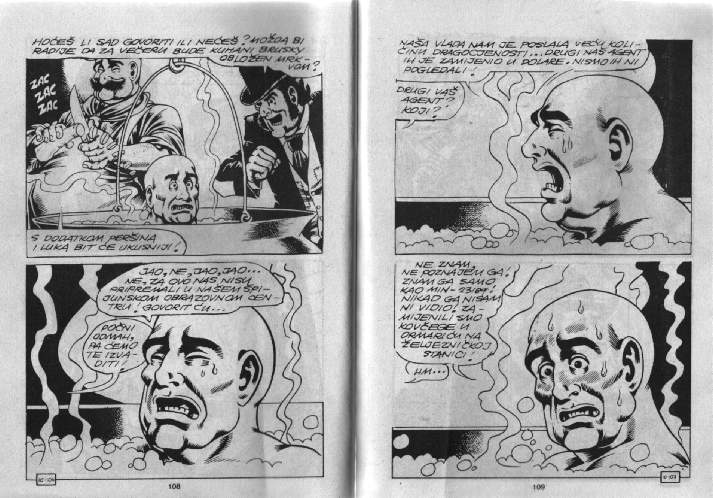 HOĆEŠ LI SAD GOVORITI ILI NEĆEŠ? MOŽDA BI
RADIJE DA ZA VEČERU BUDE KUHANI BRUSKY
OBLOŽEN MRK-
VOM?
ZAC
ZAC
ZAC
S DODATKOM PERŠINA
I LUKA BIT ĆE UKUSNIJI!
JAO, NE, JAO, JAO...
NE, ZA OVO NAS NISU
PRIPREMALI U NAŠEM ŠPI-
JUNSKOM OBRAZOVNOM CEN-
TRU! GOVORIT ĆU...
POČNI
ODMAH,
PA ĆEMO
TE IZVA-
DITI!
108
NAŠA VLADA NAM JE POSLALA VEĆU KOLI-
ČINU DRAGOCJENOSTI... DRUGI NAŠ AGENT
IH JE ZAMIJENIO U DOLARE. NISMO IH NI
POGLEDALI!
DRUGI VAŠ
AGENT?
KOJI?
NE ZNAM,
NE POZNAJEM GA!
ZNAM GA SAMO
KAO MIN-
NIKAD GA NISAM
NI VIDIO! ZA-
MIJENILI SMO
KOVČEGE U
ORMARIĆU NA
ŽELJEZNIČKOJ
STANICI!
HM...
109